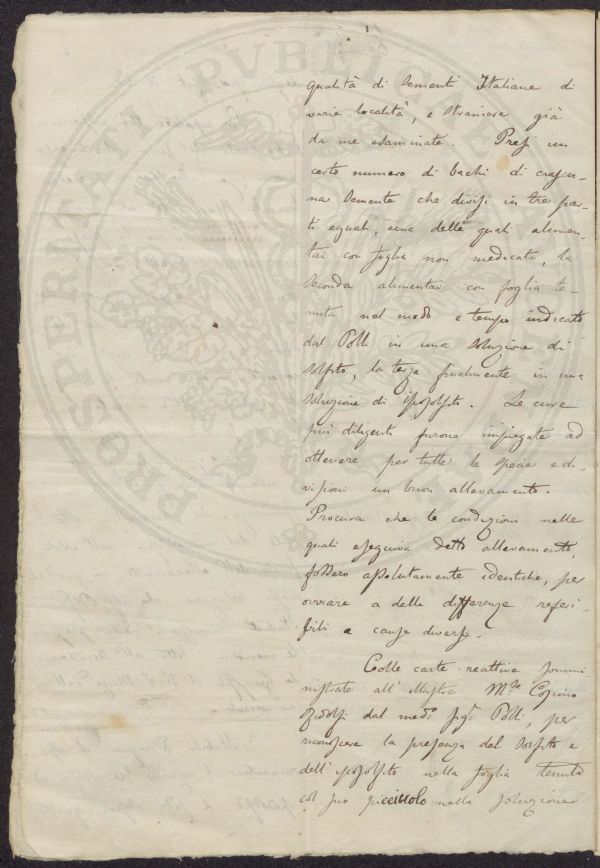 qualità di Sementi Italiane di
varie località, e straniere già
da me esaminate. Presi un
certo numero di bachi di ciascu-
na Semente che divisi in tre par-
ti eguali, una delle quali alimen-
tai con foglia non medicata, la
seconda alimentai con foglia te-
nuta nel modo e tempo indicato
dal Polli in una soluzione di
solfito, la terza finalmente in una
soluzione di iposolfito. Le cure
più diligenti furono impiegate ad
ottenere per tutte le specie e di-
visioni un buon allevamento.
Procurai che le condizioni nelle
quali eseguiva detto allevamento,
fossero assolutamente identiche, per
ovviare a delle differenze referi-
bili a cause diverse.
Colle carte reattive sommi
nistrate all' Illustre M.se Cosimo
Ridolfi dal med.o sig.r Polli, per
riconoscere la presenza del solfito e
dell' iposolfito nella foglia tenuta
col suo picciuolo nella soluzione
PROSPERITATI PVBLICAE